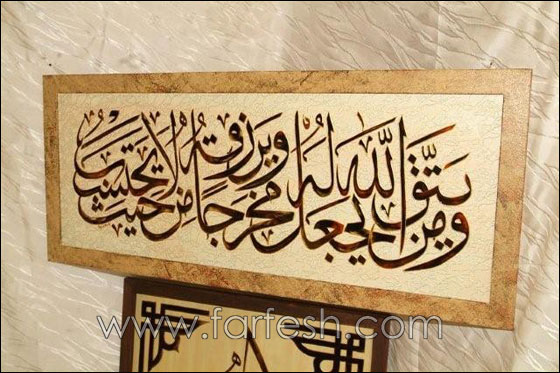 ومن يتق الله يجعل له مخرجا ويرزقه من حيث لا يحتسب
www.farfesh.com